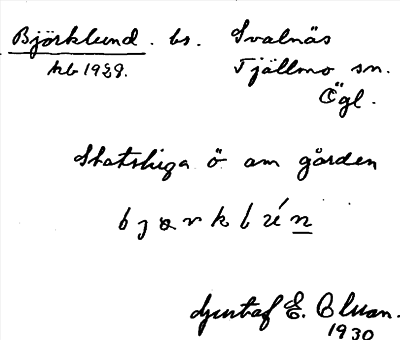 Björklund. bs. Svalnäs
hb 1929. Tjällmo sn.
Ögl.
Statshiga ö om gården
bjorkln
Gustaf E. Bluan.
1930